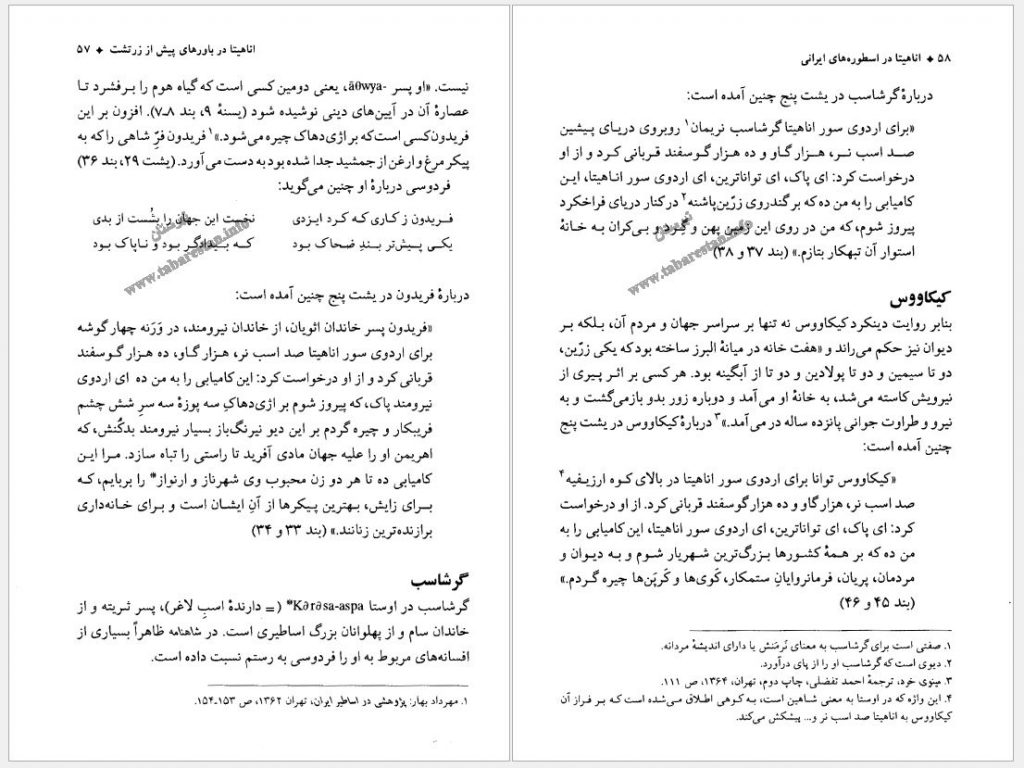 اناهیتا در باورهای پیش از زرتشت ♦ ۵۷
نیست. «او پسر āθwya-، یعنی دومین کسی است که گیاه هوم را برفشرد تا
عصارهٔ آن در آیین‌های دینی نوشیده شود (یسنهٔ ۹، بند ۸ـ۷). افزون بر این
فریدون کسی است که بر اژی‌دهاک چیره می‌شود.»۱ فریدون فرّ شاهی را که به
پیکر مرغ وارغن از جمشید جدا شده بود به دست می‌آورد. (یشت ۲۹، بند ۳۶)
فردوسی دربارهٔ او چنین می‌گوید:
فریدون ز کاری که کرد ایزدی نخست این جهان را بشُست از بدی
یکی پیش‌تر بندِ ضحاک بود که بیدادگر بود و ناپاک بود
www.tabarestan.info
دربارهٔ فریدون در یشت پنج چنین آمده است:
«فریدون پسر خاندان اثویان، از خاندان نیرومند، در وَرَنه چهار گوشه
برای اردوی سور اناهیتا صد اسب نر، هزار گاو، ده هزار گوسفند
قربانی کرد و از او درخواست کرد: این کامیابی را به من ده ای اردوی
نیرومند پاک، که پیروز شوم بر اژی‌دهاکِ سه پوزهٔ سه سرِ شش چشم
فریبکار و چیره گردم بر این دیو نیرنگ‌باز بسیار نیرومند بدکُنش، که
اهریمن او را علیه جهان مادی آفرید تا راستی را تباه سازد. مرا این
کامیابی ده تا هر دو زن محبوب وی شهرناز و ارنواز* را بربایم، که
برای زایش، بهترین پیکرها از آنِ ایشان است و برای خانه‌داری
برازنده‌ترین زنانند.» (بند ۳۳ و ۳۴)
گرشاسب
گرشاسب در اوستا Kərəsa-aspa* (= دارندهٔ اسبِ لاغر)، پسر ثریته و از
خاندان سام و از پهلوانان بزرگ اساطیری است. در شاهنامه ظاهراً بسیاری از
افسانه‌های مربوط به او را فردوسی به رستم نسبت داده است.
۱. مهرداد بهار: پژوهشی در اساطیر ایران، تهران ۱۳۶۲، ص ۱۵۳ـ۱۵۴.
۵۸ ♦ اناهیتا در اسطوره‌های ایرانی
دربارهٔ گرشاسب در یشت پنج چنین آمده است:
«برای اردوی سور اناهیتا گرشاسب نریمان۱ روبروی دریای پیشین
صد اسب نر، هزار گاو و ده هزار گوسفند قربانی کرد و از او
درخواست کرد: ای پاک، ای تواناترین، ای اردوی سور اناهیتا، این
کامیابی را به من ده که بر گندروی زرّین‌پاشنه۲ در کنار دریای فراخکرد
پیروز شوم، که من در روی این زمین پهن و گرد و بی‌کران به خانهٔ
استوار آن تبهکار بتازم.» (بند ۳۷ و ۳۸)
www.tabarestan.info
کیکاووس
بنابر روایت دینکرد کیکاووس نه تنها بر سراسر جهان و مردم آن، بلکه بر
دیوان نیز حکم می‌راند و «هفت خانه در میانهٔ البرز ساخته بود که یکی زرّین،
دو تا سیمین و دو تا پولادین و دو تا از آبگینه بود. هر کسی بر اثر پیری از
نیرویش کاسته می‌شد، به خانهٔ او می‌آمد و دوباره زور بدو بازمی‌گشت و به
نیرو و طراوت جوانی پانزده ساله در می‌آمد.»۳ دربارهٔ کیکاووس در یشت پنج
چنین آمده است:
«کیکاووس توانا برای اردوی سور اناهیتا در بالای کوه ارزیفیه۴
صد اسب نر، هزار گاو و ده هزار گوسفند قربانی کرد. از او درخواست
کرد: ای پاک، ای تواناترین، ای اردوی سور اناهیتا، این کامیابی را به
من ده که بر همهٔ کشورها بزرگ‌ترین شهریار شوم و به دیوان و
مردمان، پریان، فرمانروایانِ ستمکار، کَوی‌ها و کَرپَن‌ها چیره گردم.»
(بند ۴۵ و ۴۶)
۱. صفتی است برای گرشاسب به معنای نَرمَنش یا دارای اندیشهٔ مردانه.
۲. دیوی است که گرشاسب او را از پای درآورد.
۳. مینوی خرد، ترجمهٔ احمد تفضلی، چاپ دوم، تهران، ۱۳۶۴، ص ۱۱۱.
۴. این واژه که در اوستا به معنی شاهین است، به کوهی اطلاق می‌شده است که بر فراز آن
کیکاووس به اناهیتا صد اسب نر و... پیشکش می‌کند.